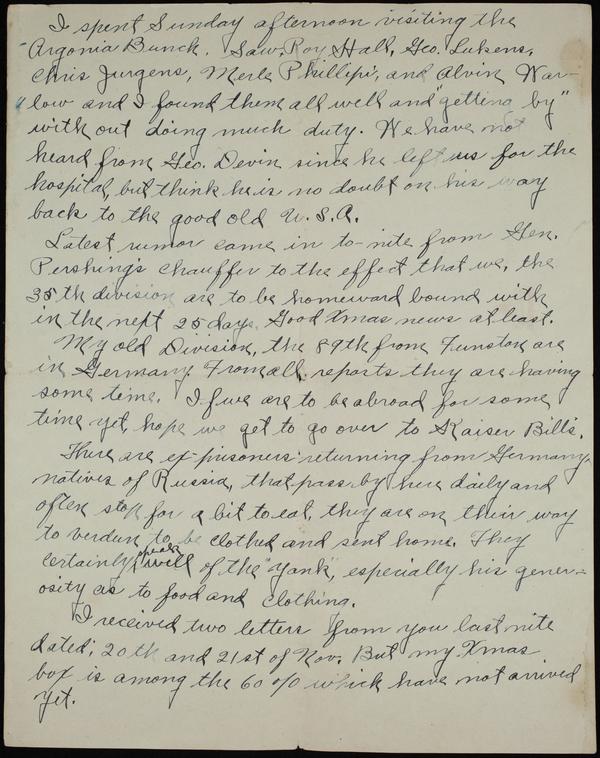 I spent Sunday afternoon visiting the
Argonia Bunch. Saw, Roy Hall, Geo. Lukens,
Chris Jurgens, Merle Phillipi, and Alvin War-
low and I found them all well and "getting by"
with out doing much duty. We have not
heard from Geo. Devin since he left us for the
hospital, but think he is no doubt on his way
back to the good old U.S.A.
Latest rumor came in to-nite from Gen.
Pershing's chauffer to the effect that we, the
35th division are to be homeward bound with
in the next 25 days. Good Xmas news at least.
My old Division, the 89th from Funston are
in Germany. From all reports they are having
some time. If we are to be abroad for some
time yet, hope we get to go over to Kaiser Bill's.
There are ex-prisoners returning from Germany
natives of Russia, that pass by here daily and
often stop for a bit to eat, they are on their way
to verdun to be clothed and sent home. They
certainly speak well of the "Yank", especially his gener-
osity as to food and clothing.
I received two letters from you last nite
dated; 20th and 21st of Nov. But my Xmas
box is among the 60% which have not arrived
yet.